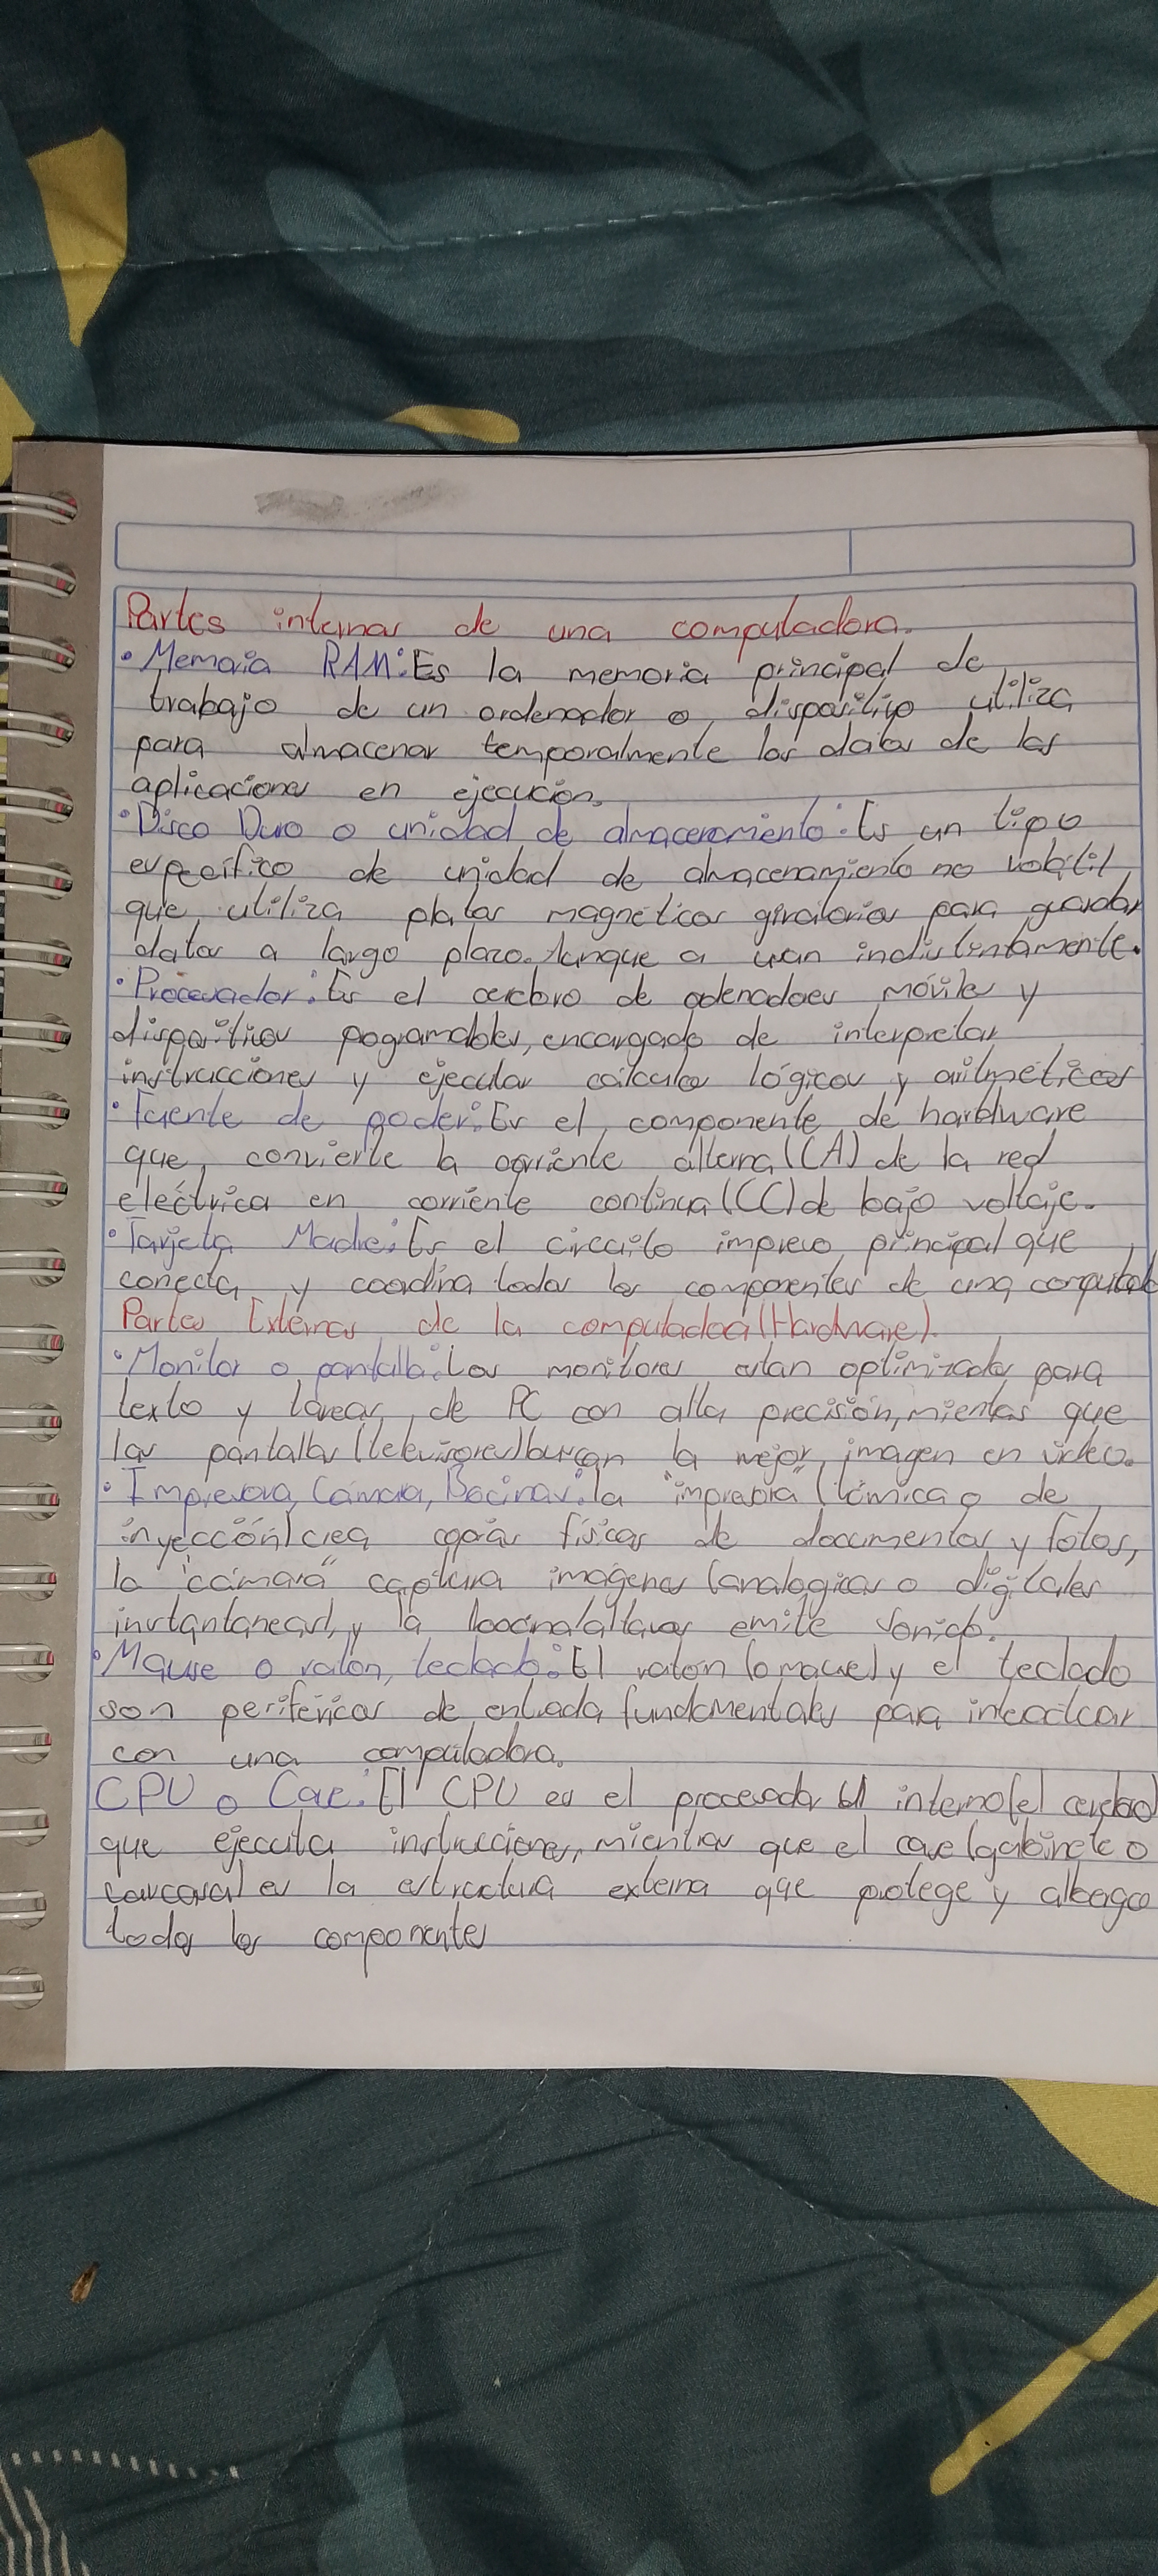 Partes internas de una computadora.
• Memoria RAM: Es la memoria principal de
trabajo de un ordenador o dispositivo utiliza
para almacenar temporalmente los datos de las
aplicaciones en ejecución.
• Disco Duro o unidad de almaceramiento: Es un tipo
específico de unidad de almacenamiento no volátil
que utiliza platos magnéticos giratorios para guardar
datos a largo plazo. Aunque a usan indistintamente.
• Procesador: Es el cerebro de odenadoes móviles y
dispositivos pogramables, encargado de interpretar
instrucciones y ejecutar cálculos lógicos y aritméticos
• Fuente de poder: Es el componente de hardware
que convierte la corriente alterna (CA) de la red
eléctrica en corriente continua (CC) de bajo voltaje.
• Tarjeta Madre: Es el circuito impreso principal que
conecta y coordina todos los componentes de una
Partes Externas de la computadoa (Hardware).
• Monitor o pantalla: Los monitores estan optimizados para
texto y tareas de PC con alta precisión, mientas que
las pantallas (televisores) buscan la mejor imagen en video.
• Impresora, Cámara, Bocinas: la "impresora" (tómica o de
inyección) crea copias físicas de documentos y fotos,
la "cámara" captura imágenes (analogicas o digitales
instantaneas), y la bocina/altavos emite sonido.
• Mouse o ratón, teclado: El ratón (o mouse) y el teclado
son periféricos de entrada fundamentales para
con una computadora.
CPU o Case: El CPU es el procesador interno (el cerebro)
que ejecuta instrucciones, mientras que el case (gabinete o
carcasa) es la estructura externa que protege y
todos los componentes